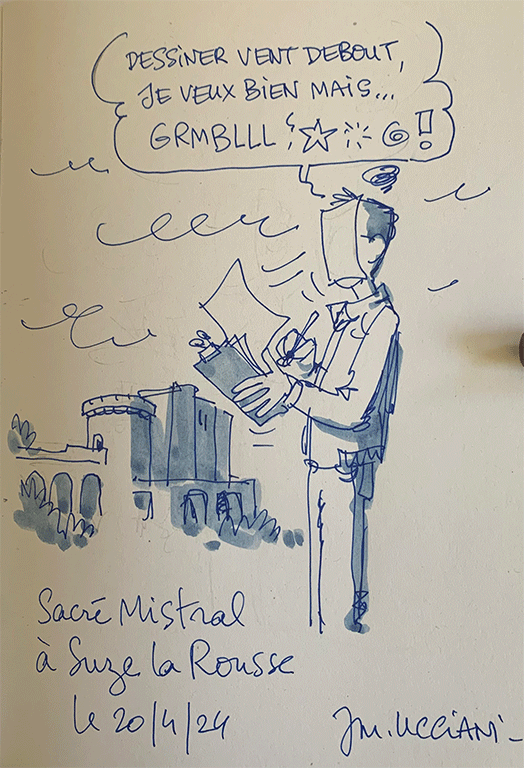 DESSINER VENT DEBOUT,
JE VEUX BIEN MAIS...
GRMBLLL !
Sacré Mistral
à Suze la Rousse
le 20/4/24
JM. UCCIANI